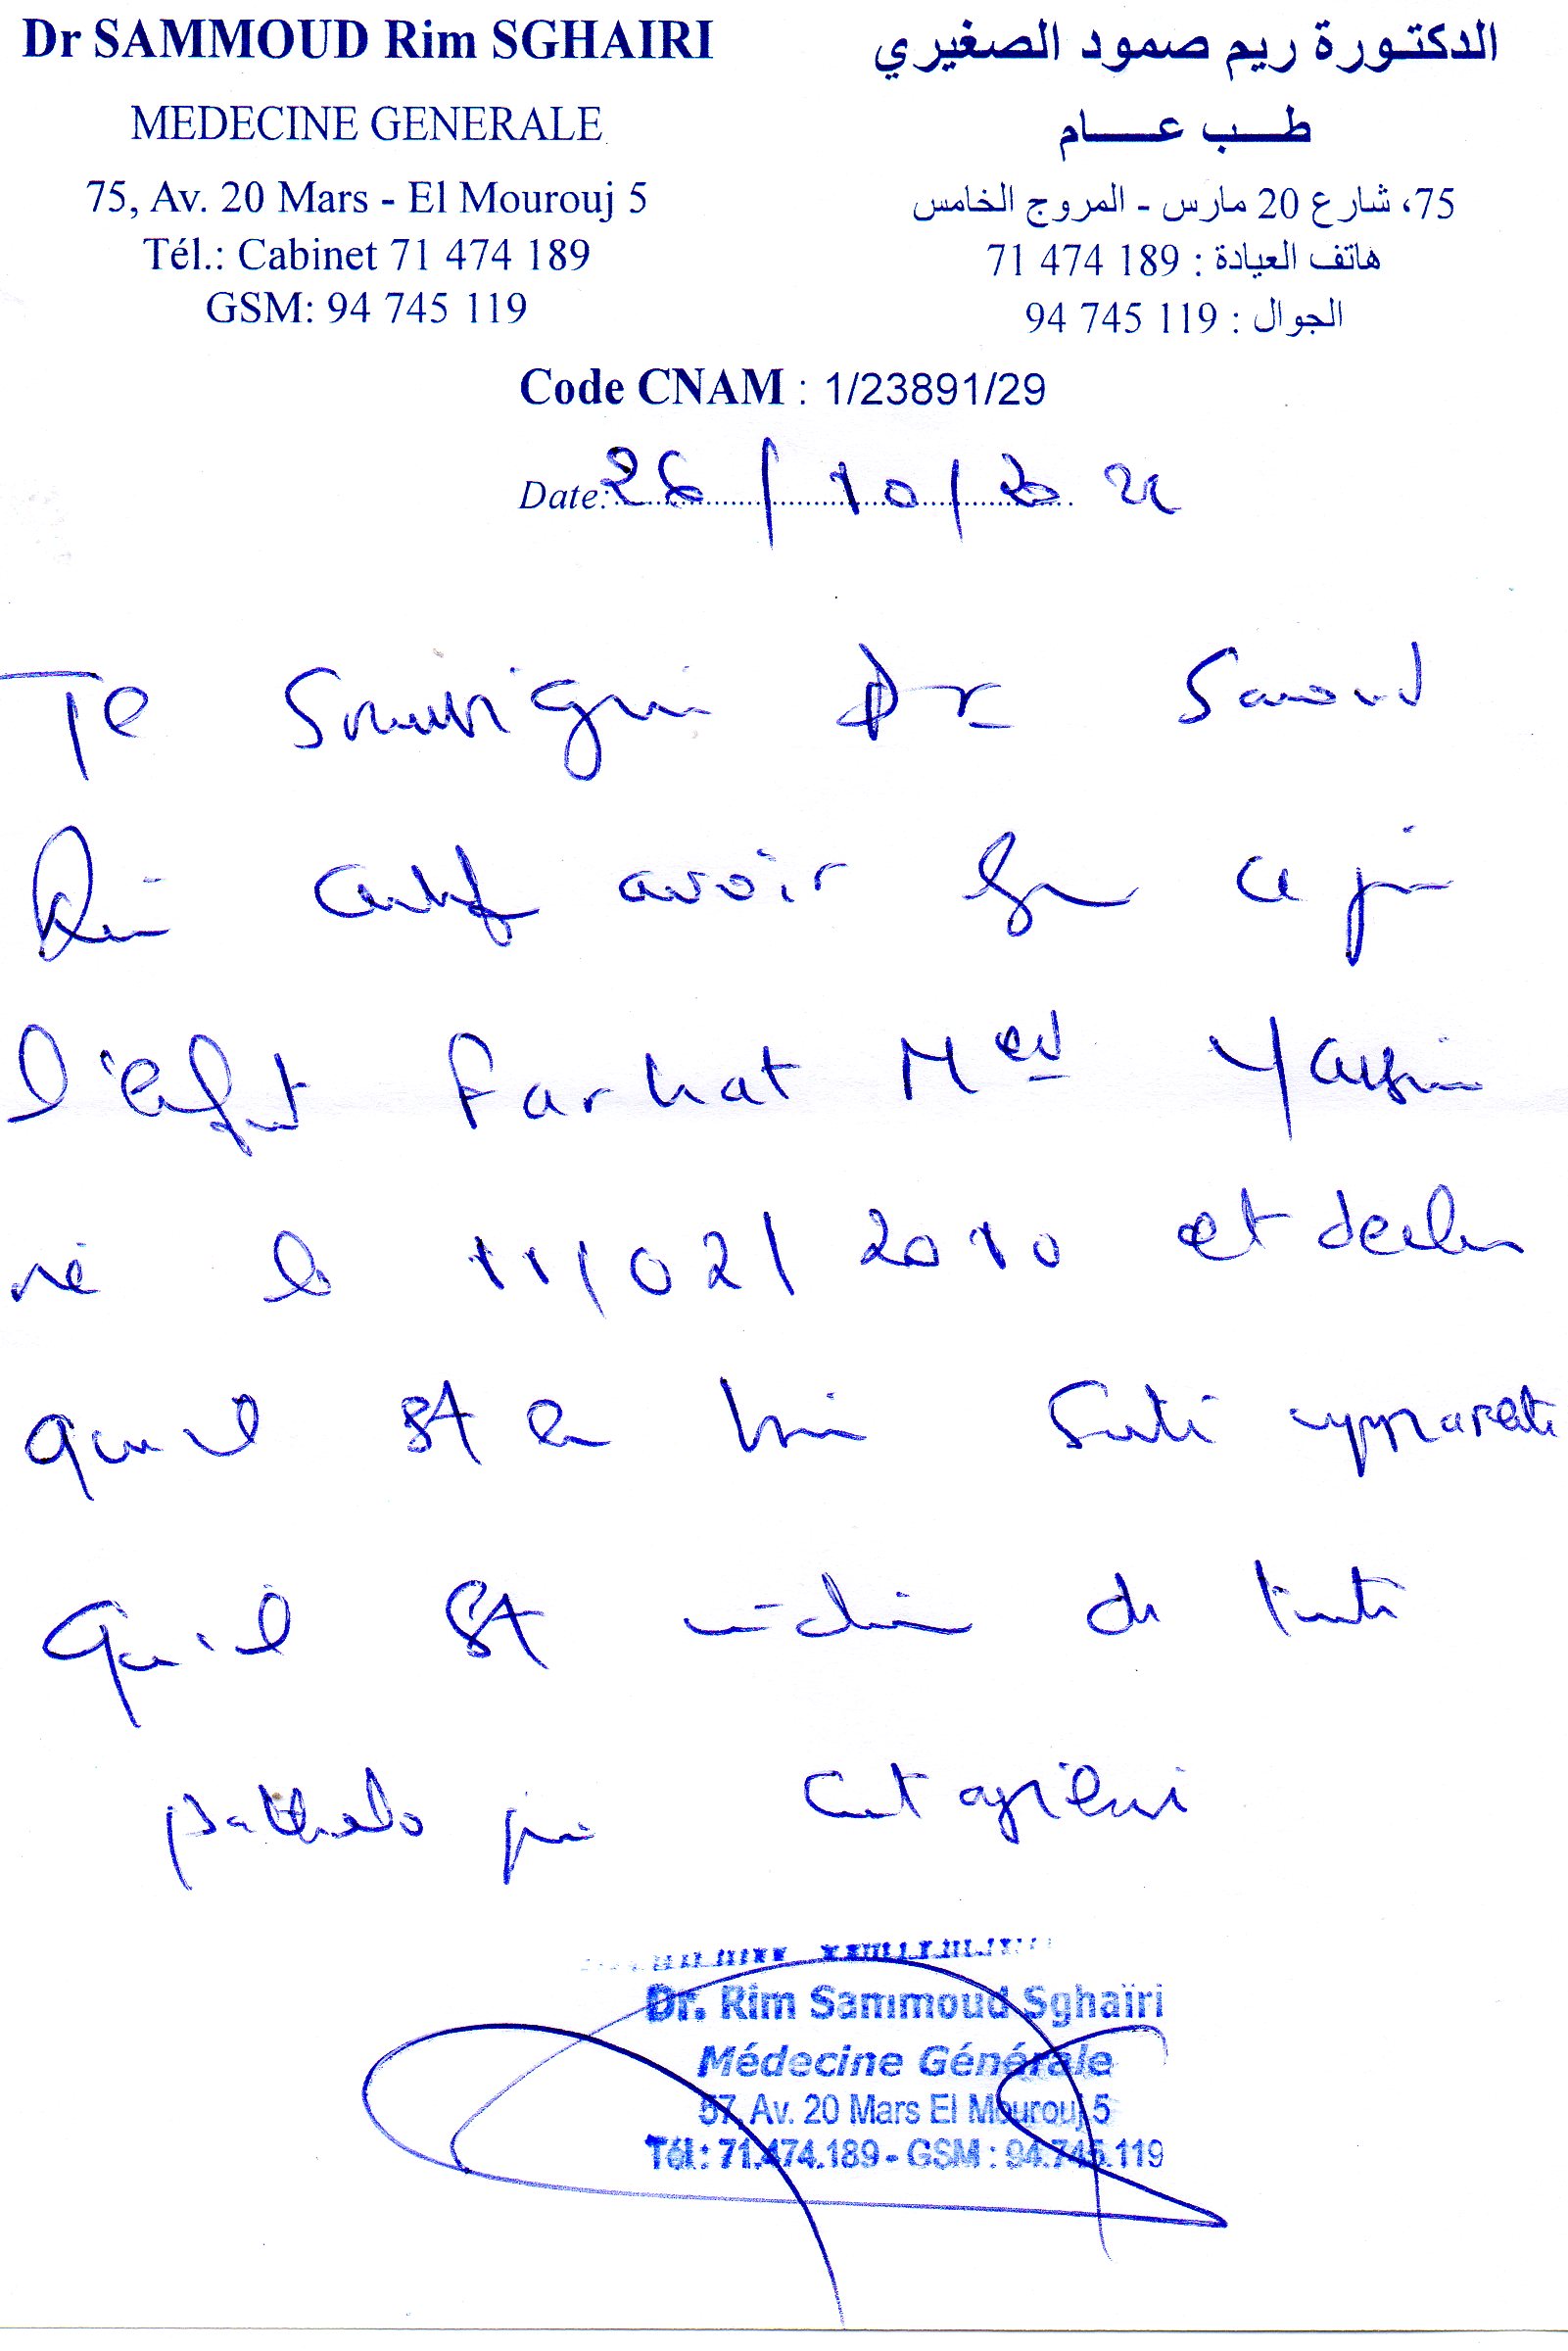 Dr SAMMOUD Rim SGHAIRI
MEDECINE GENERALE
75, Av. 20 Mars - El Mourouj 5
Tél.: Cabinet 71 474 189
GSM: 94 745 119
الدكتورة ريم صمود الصغيري
طب عام
75، شارع 20 مارس - المروج الخامس
هاتف العيادة : 189 474 71
الجوال : 119 745 94
Code CNAM : 1/23891/29
Date: 26/10/20
Je soussigné Dr Samoud
Rim certifie avoir ce jour
l'enfant Farhat Med Yassin
né le 11/02/2010 et déclare
qu'il est en bonne santé apparente
qu'il est de toute
Dr. Rim Sammoud Sghaïri
Médecine Générale
57, Av. 20 Mars El Mourouj 5
Tél.: 71.474.189 - GSM : 94.745.119